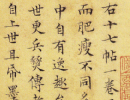 右十七帖一卷
而肥瘦不同
中自有逸
世更兵後傳
自上世且帝墨